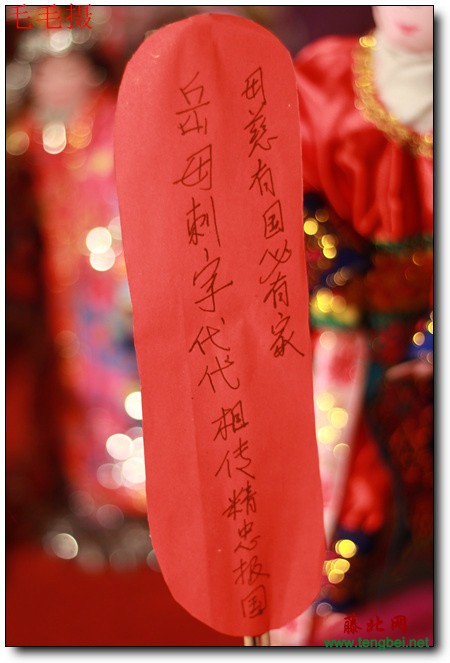 毛毛摄
母慈有国必有家
岳母刺字代代相传精忠报国
藤北网
www.tengbei.net